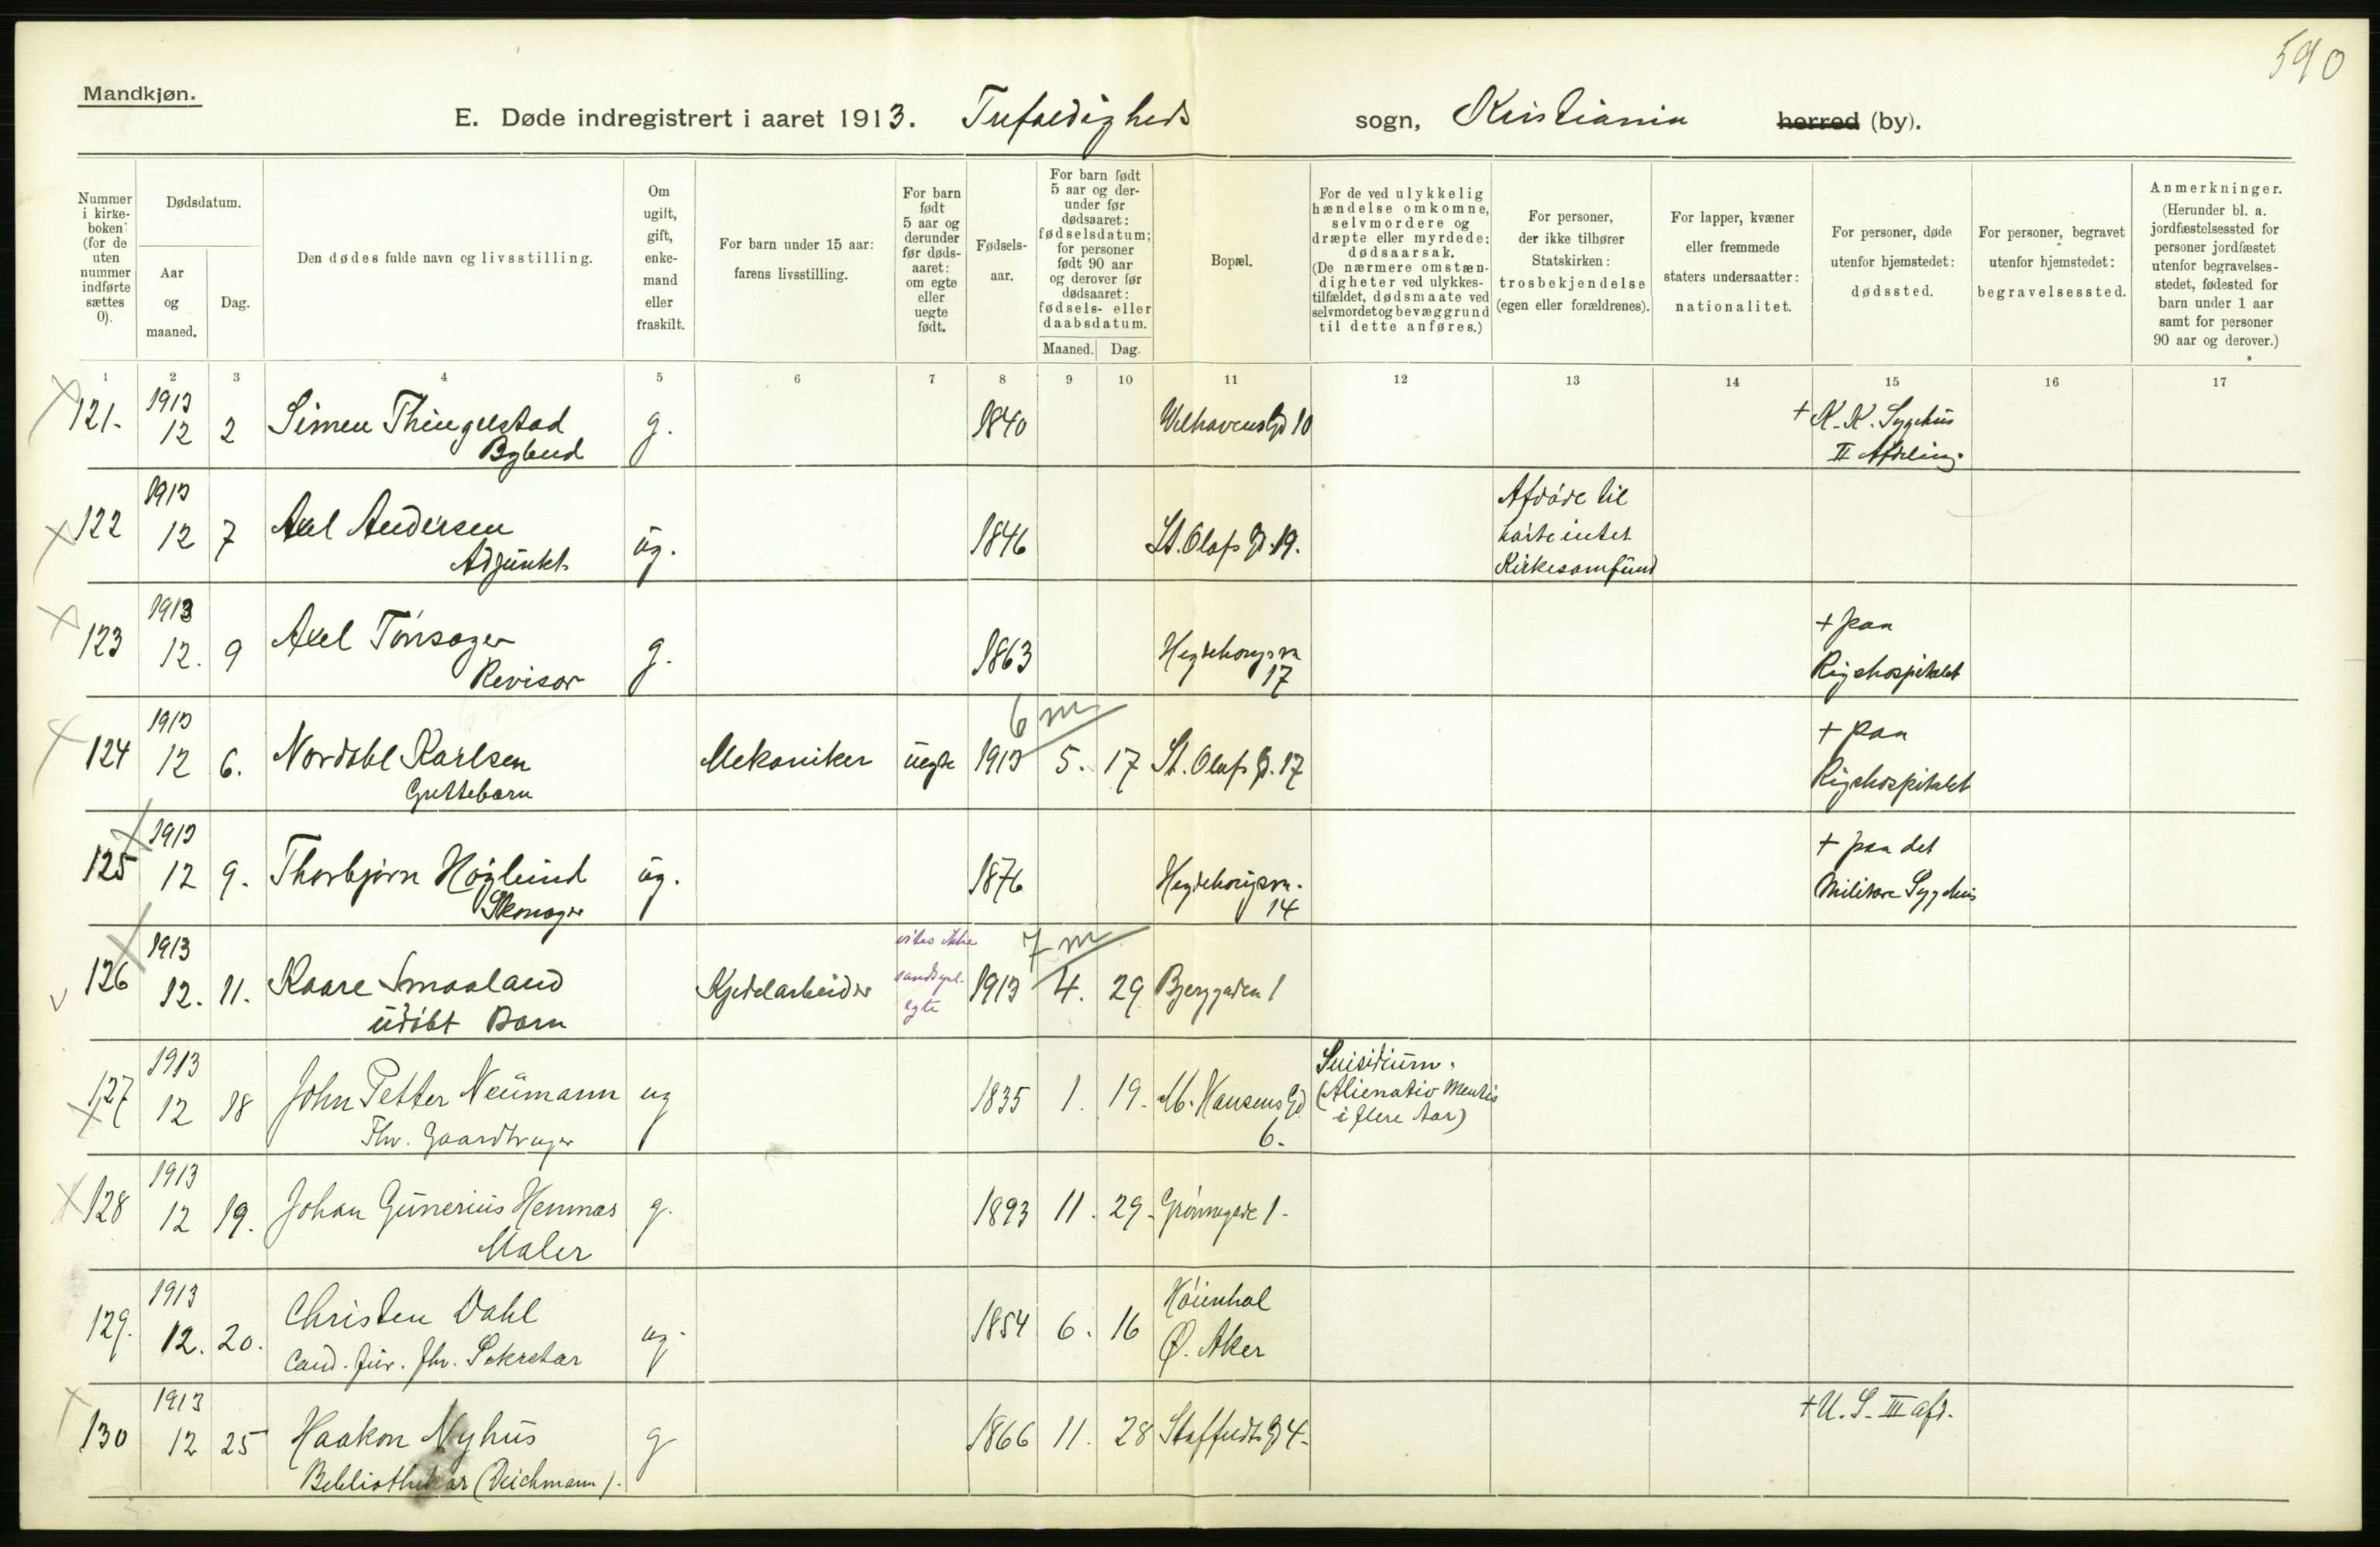 590
Mandkjøn.
E. Døde indregistrert i aaret 1913. Trefoldigheds sogn, Kristiania herred (by).
Nummer i kirke-boken (for de uten nummer indførte sættes 0).
Dødsdatum.
Aar og maaned.
Dag.
Den dødes fulde navn og livsstilling.
Om ugift, gift, enke-mand eller fraskilt.
For barn under 15 aar: farens livsstilling.
For barn født 5 aar og derunder før døds-aaret: om egte eller uegte født.
Fødsels-aar.
For barn født 5 aar og der-under før dødsaaret: fødselsdatum; for personer født 90 aar og derover før dødsaaret: fødsels- eller daabsdatum.
Maaned. Dag.
Bopæl.
For de ved ulykkelig hændelse omkomne, selvmordere og dræpte eller myrdede: dødsaarsak. (De nærmere omstæn-digheter ved ulykkes-tilfældet, dødsmaate ved selvmordet og bevæggrund til dette anføres.)
For personer, der ikke tilhører Statskirken: trosbekjendelse (egen eller forældrenes).
For lapper, kvæner eller fremmede staters undersaatter: nationalitet.
For personer, døde utenfor hjemstedet: dødssted.
For personer, begravet utenfor hjemstedet: begravelsessted.
Anmerkninger. (Herunder bl. a. jordfæstelsessted for personer jordfæstet utenfor begravelses-stedet, fødested for barn under 1 aar samt for personer 90 aar og derover.)
1 2 3 4 5 6 7 8 9 10 11 12 13 14 15 16 17
121. 1913 12 2 Simen Thingelstad g. 1840 Welhavens Gd 10 + K. K. Sygehus
Bybud II Afdeling
122 1913 12 7 Axel Andersen ug. 1846 St. Olafs Gd. 19. Afdøde til
Adjunkt hørte intet
Kirkesamfund
123 1913 12. 9 Axel Tønsager g. 1863 Hegdehaugsvn + paa
Revisor 17 Rigshospitalet
6 m
124 1913 12 6. Nordahl Karlsen Mekaniker uegte 1913 5. 17 St. Olafs G. 17 + paa
Guttebarn Rigshospitalet
125 1913 12 9. Thorbjørn Høglund ug. 1876 Hegdehaugsvn. + paa det
Skomager 14 Militære Sygehus
7 m
126 1913 12. 11. Kaare Smaaland Kjedelarbeider vites ikke sandsynl. egte 1913 4. 29 Bjerggaden 1
udøbt Barn
127 1913 12 18 John Petter Neumann ug 1835 1. 19. M. Hansens Gd Suisidium.
Fhv. Gaardbruger 6. (Alienatio Mentis
i flere Aar)
128 1913 12 19. Johan Gunerius Hemnæs g. 1893 11. 29. Grønnegade 1.
Maler
129. 1913 12. 20. Christen Dahl ug. 1854 6. 16 Høienhal
Cand. jur. fhv. Sekretær Ø. Aker
130 1913 12 25 Haakon Nyhus g 1866 11. 28 Staffeldts Gd 4. + U. S. III afd.
Bibliothekar (Deichmann).